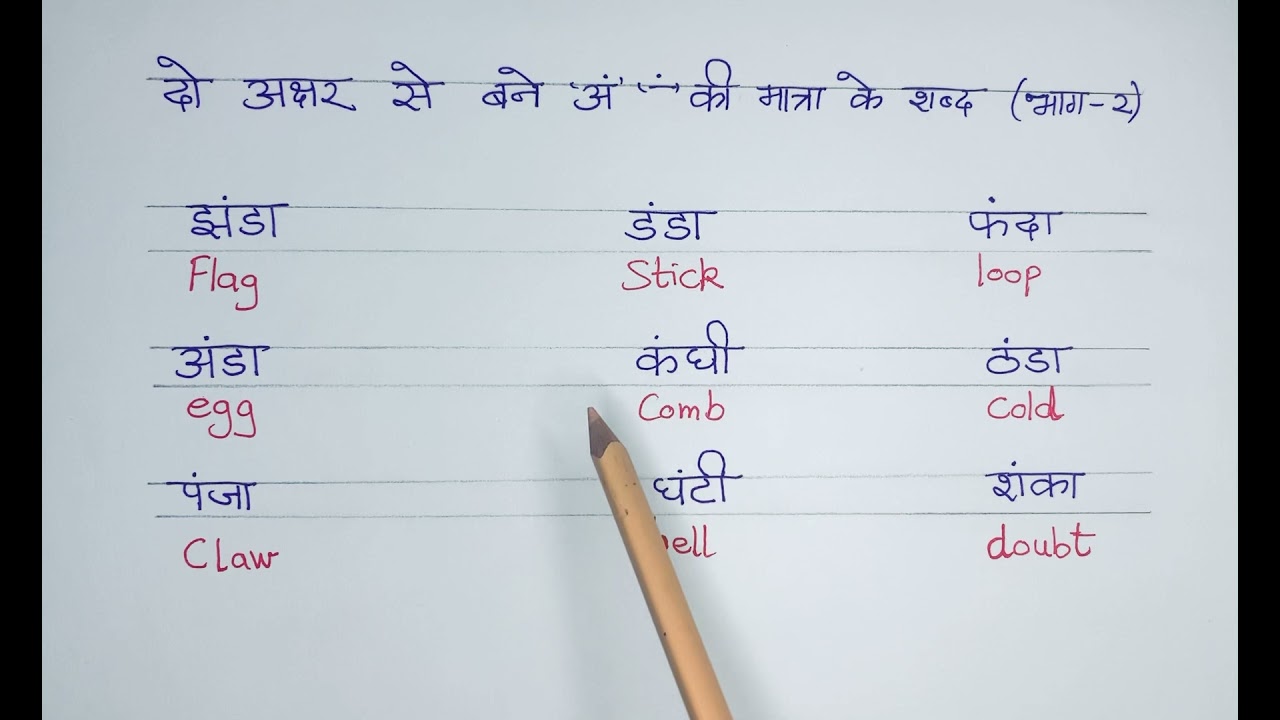 दो अक्षर से बने 'अं' '-ं' की मात्रा के शब्द (भाग-२)
झंडा डंडा फंदा
Flag Stick loop
अंडा कंघी ठंडा
egg Comb Cold
पंजा घंटी शंका
Claw doubt